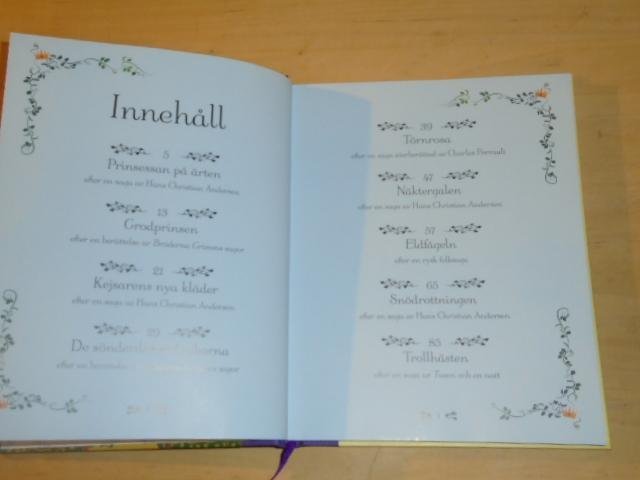 Innehåll
5
Prinsessan på ärten
efter en saga av Hans Christian Andersen
13
Grodprinsen
efter en berättelse av Bröderna Grimms sagor
21
Kejsarens nya kläder
efter en saga av Hans Christian Andersen
29
De
efter en berättelse sagor
39
Törnrosa
efter en saga återberättad av Charles Perrault
47
Näktergalen
efter en saga av Hans Christian Andersen
57
Eldfågeln
efter en rysk folksaga
65
Snödrottningen
efter en saga av Hans Christian Andersen
85
Trollhästen
efter en saga ur Tusen och en natt